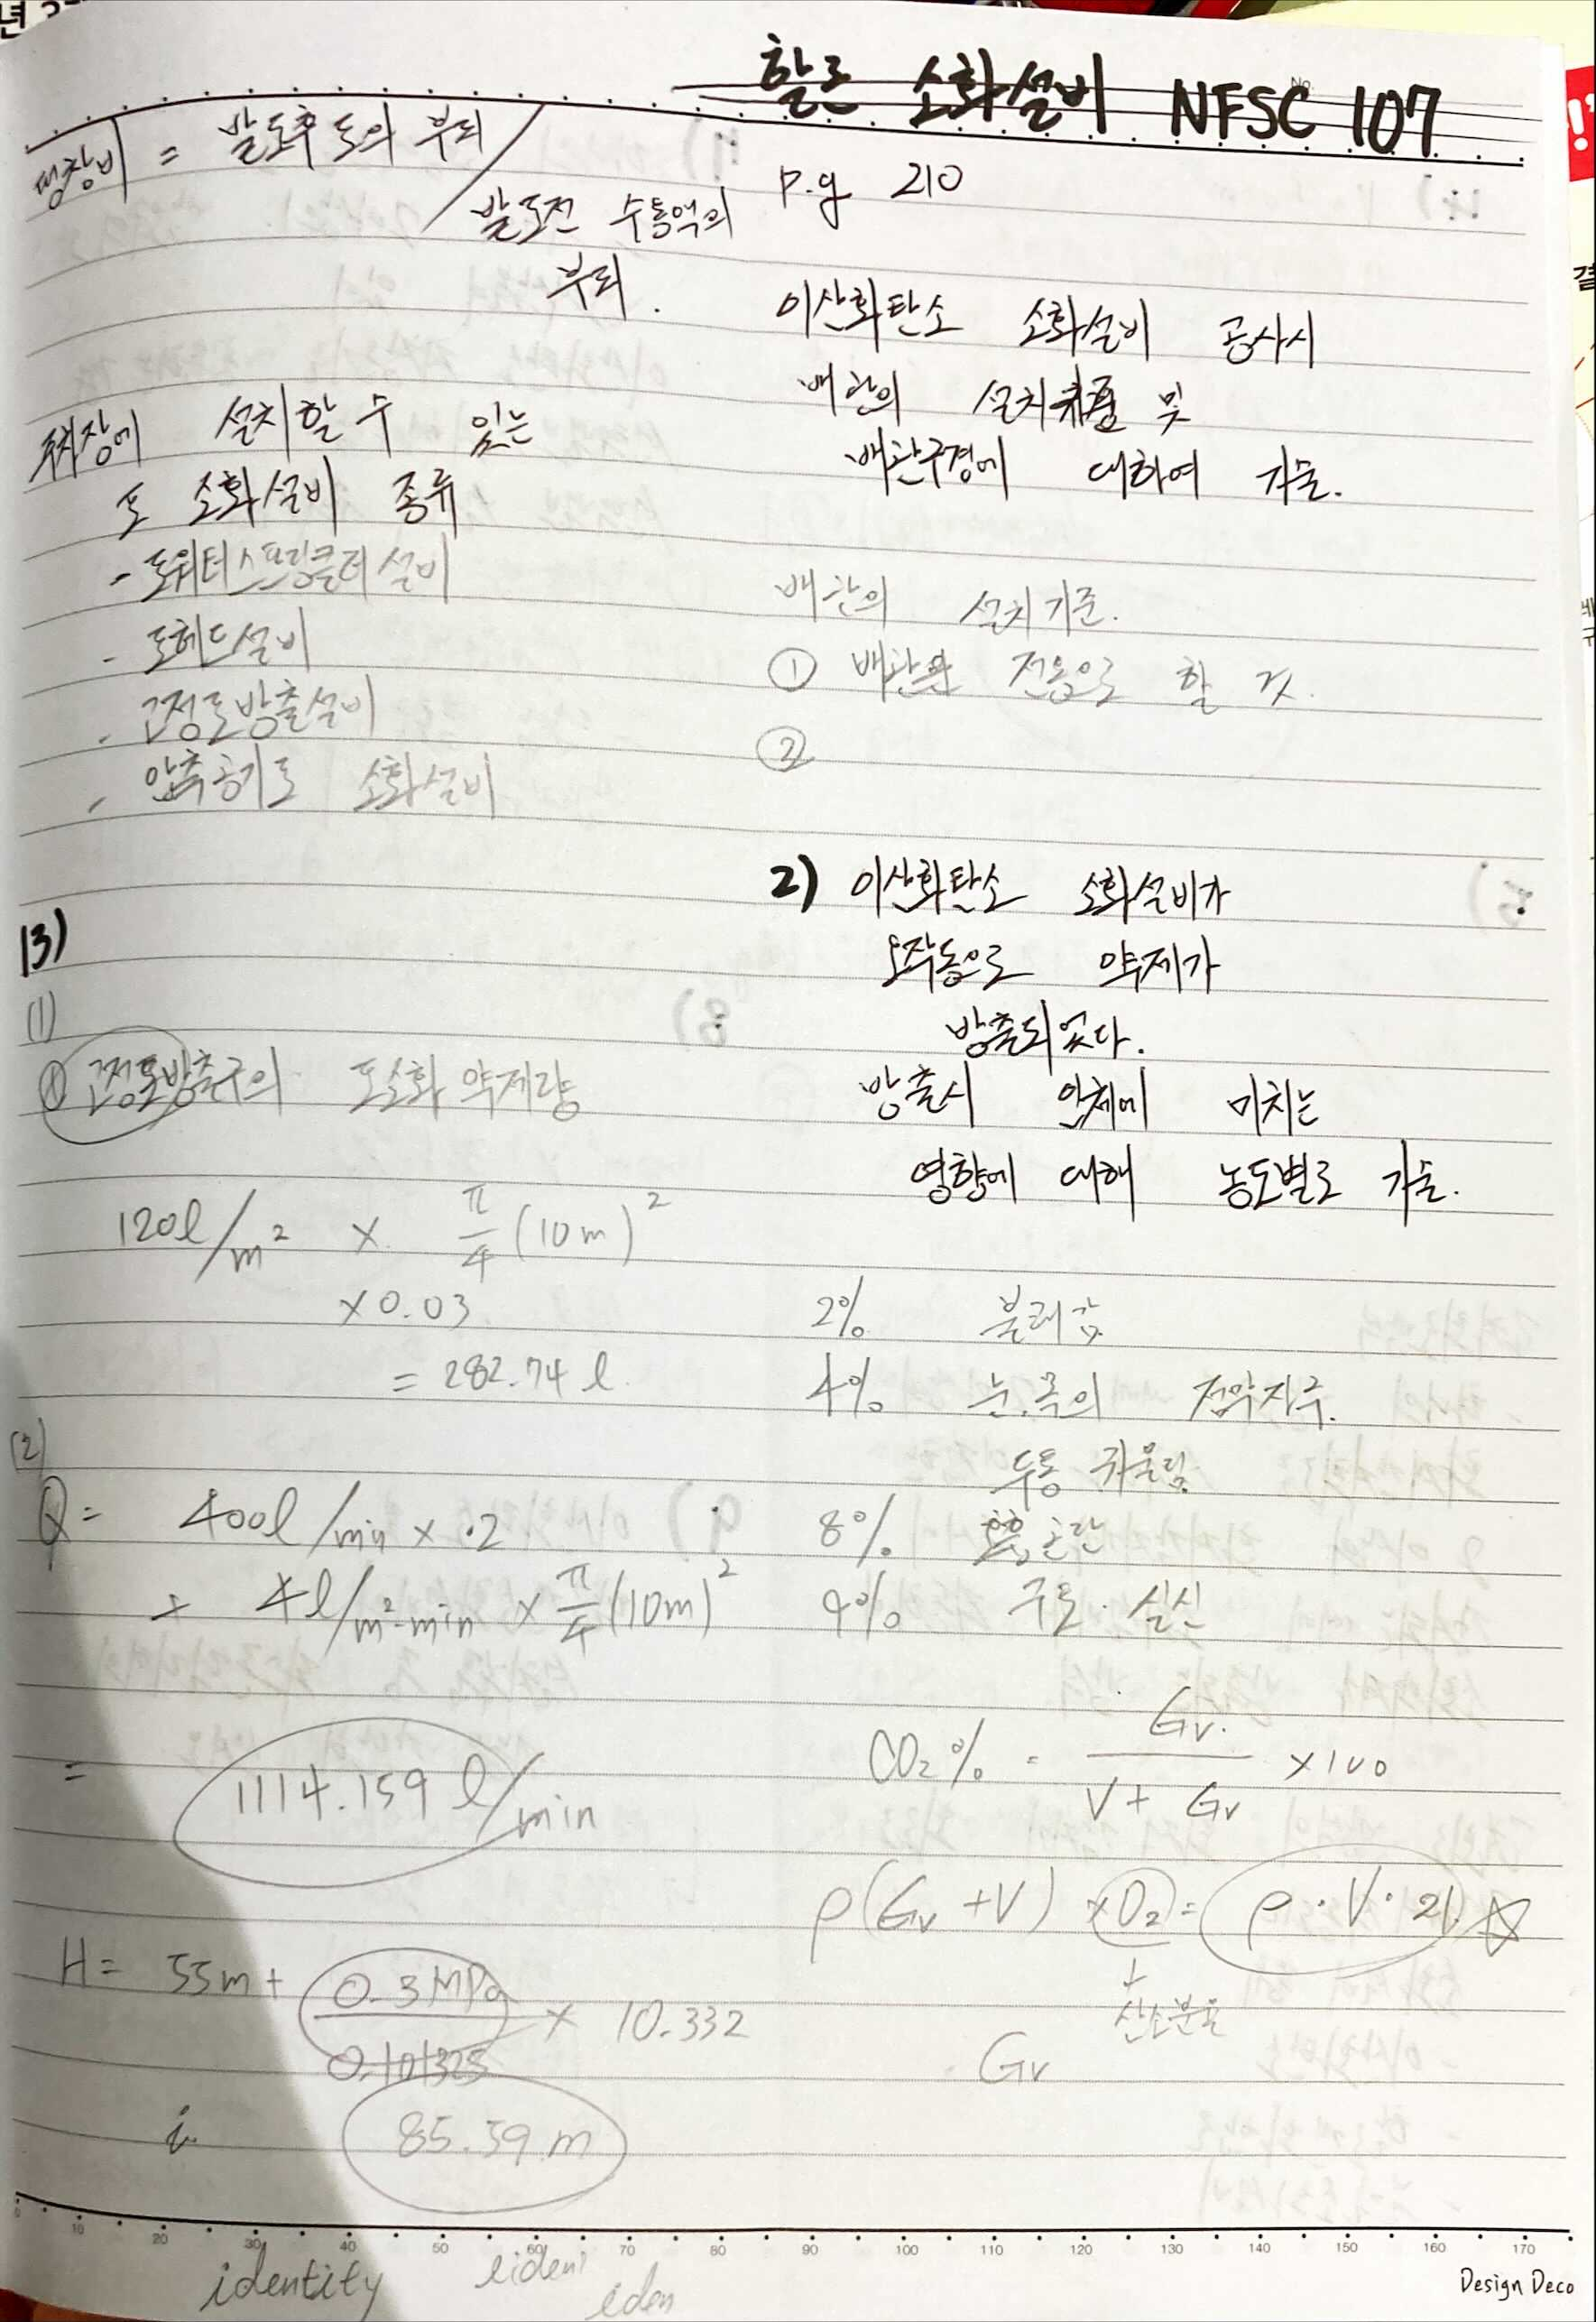 할론 소화설비 NFSC 107
팽창비 = 발포후 포의 부피 /
발포전 수용액의
부피.
주차장에 설치할 수 있는
포 소화설비 종류
- 포워터스프링클러설비
- 포헤드설비
- 고정포방출설비
- 압축공기포 소화설비
13)
(1)
① 고정포방출구의 포소화약제량
120l/m² × π/4 (10m)²
×0.03
= 282.74 l
(2)
Q = 400l/min × 2
+ 4l/m²·min × π/4 (10m)²
= 1114.159 l/min
H = 55m + 0.3MPa/0.101325 × 10.332
85.59 m
P.g 210
이산화탄소 소화설비 공사시
배관의 설치기준 및
배관구경에 대하여 기술.
배관의 설치기준.
① 배관은 전용으로 할 것.
②
2) 이산화탄소 소화설비가
오작동으로 약제가
방출되었다.
방출시 인체에 미치는
영향에 대해 농도별로 기술.
2% 불쾌감
4% 눈.목의 점막자극.
두통 귀울림
8% 호흡곤란
9% 구토. 실신
CO₂% = Gv/(V + Gv) ×100
ρ(Gv + V) × O₂ = ρ · V · 21 ☆
산소분율
Gv
0 10 20 30 40 50 60 70 80 90 100 110 120 130 140 150 160 170
identity
iden
Design Deco